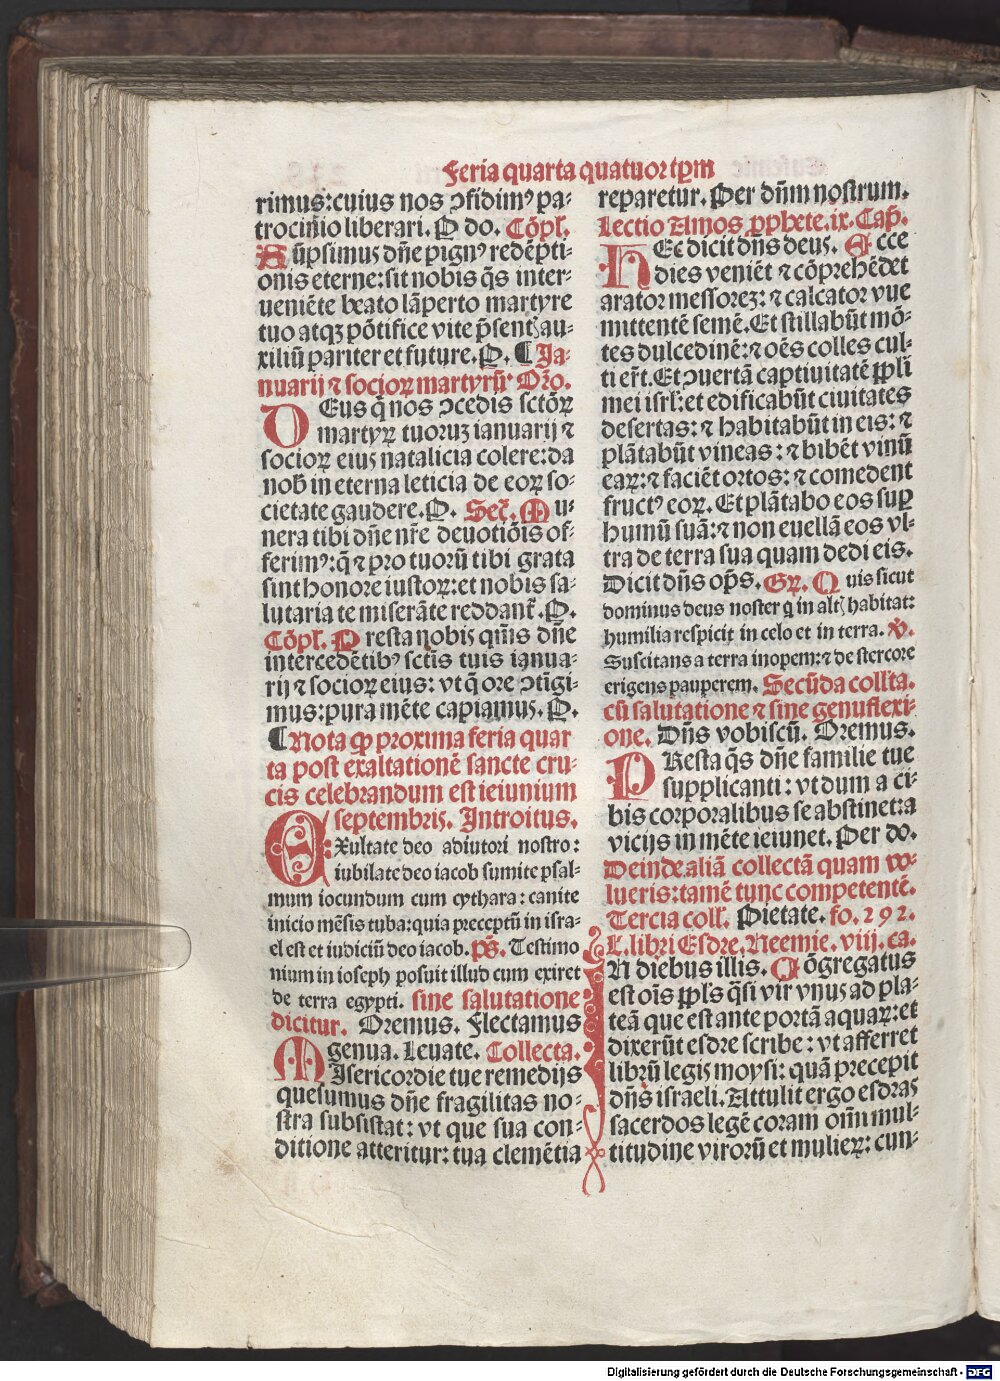 Feria quarta quatuor tp̄m
rimus: cuius nos ↄfidimꝰ pa⸗
trocinio liberari. P do. Cōpl̄.
Sūpsimus dn̄e pignꝰ redēpti⸗
onis eterne: sit nobis q̄s inter⸗
ueniēte beato lāperto martyre
tuo atqꝫ pōtifice vite p̄sentꝭ au⸗
xiliū pariter et future. P. ¶ Ia⸗
nuarij ⁊ socioꝝ martyrū Or̄o.
DEus q̄ nos ↄcedis sctōꝝ
martyꝝ tuoruꝫ ianuarij ⁊
socioꝝ eius natalicia colere: da
nob̄ in eterna leticia de eoꝝ so⸗
cietate gaudere. P. Secr̄. Mu⸗
nera tibi dn̄e nr̄e deuotiōis of⸗
ferimꝰ: q̄ ⁊ pro tuorū tibi grata
sint honore iustoꝝ: et nobis sa⸗
lutaria te miserāte reddant̄. P.
Cōpl̄. Presta nobis qm̄s dn̄e
intercedētibꝰ sctīs tuis ianua⸗
rij ⁊ socioꝝ eius: vt q̄ ore ↄtīgi⸗
mus: pura mēte capiamus. P.
¶ Nota ꝙ proxima feria quar
ta post exaltationē sancte cru⸗
cis celebrandum est ieiunium
septembris. Introitus.
EXultate deo adiutori nostro:
iubilate deo iacob sumite psal⸗
mum iocundum cum cythara: canite
inicio mēsis tuba: quia preceptū in isra⸗
el est et iudiciū deo iacob. ps̄. Testimo
nium in ioseph posuit illud cum exiret
de terra egypti. sine salutatione
dicitur. Oremus. Flectamus
genua. Leuate. Collecta.
MIsericordie tue remedijs
quesumus dn̄e fragilitas no⸗
stra subsistat: vt que sua con⸗
ditione atteritur: tua clemētia
reparetur. Per dn̄m nostrum.
Lectio Amos ꝓphete. ix. Cap̄.
HEc dicit dn̄s deus. Ecce
dies veniēt ⁊ cōprehēdet
arator messoreꝫ: ⁊ calcator vue
mittentē semē. Et stillabūt mō⸗
tes dulcedinē: ⁊ oēs colles cul⸗
ti er̄t. Et ↄuertā captiuitatē ppl̄i
mei isrl̄: et edificabūt ciuitates
desertas: ⁊ habitabūt in eis: ⁊
plātabūt vineas: ⁊ bibēt vinū
eaꝝ: ⁊ faciēt ortos: ⁊ comedent
fructꝰ eoꝝ. Et plātabo eos suꝑ
humū suā: ⁊ non euellā eos vl⸗
tra de terra sua quam dedi eis.
Dicit dn̄s op̄s. Gꝝ. Quis sicut
dominus deus noster q in altꝭ habitat:
humilia respicit in celo et in terra. V̄.
Suscitans a terra inopem: ⁊ de stercore
erigens pauperem. Secūda coll'ta.
cū salutatione ⁊ sine genuflexi⸗
one. Dn̄s vobiscū. Oremus.
PResta q̄s dn̄e familie tue
supplicanti: vt dum a ci⸗
bis corporalibus se abstinet: a
vicijs in mēte ieiunet. Per do.
Deinde aliā collectā quam vo⸗
lueris: tamē tunc competentē.
Tercia coll̄. Pietate. fo. 292.
L. libri Esdre. Neemie. viij. ca.
IN diebus illis. Cōgregatus
est oīs ppl̄s q̄si vir vnus ad pla⸗
teā que est ante portā aquaꝝ: et
dixerūt esdre scribe: vt afferret
librū legis moysi: quā precepit
dn̄s israeli. Attulit ergo esdras
sacerdos legē coram om̄i mul⸗
titudine virorū et mulieꝝ: cun⸗
Digitalisierung gefördert durch die Deutsche Forschungsgemeinschaft - DFG